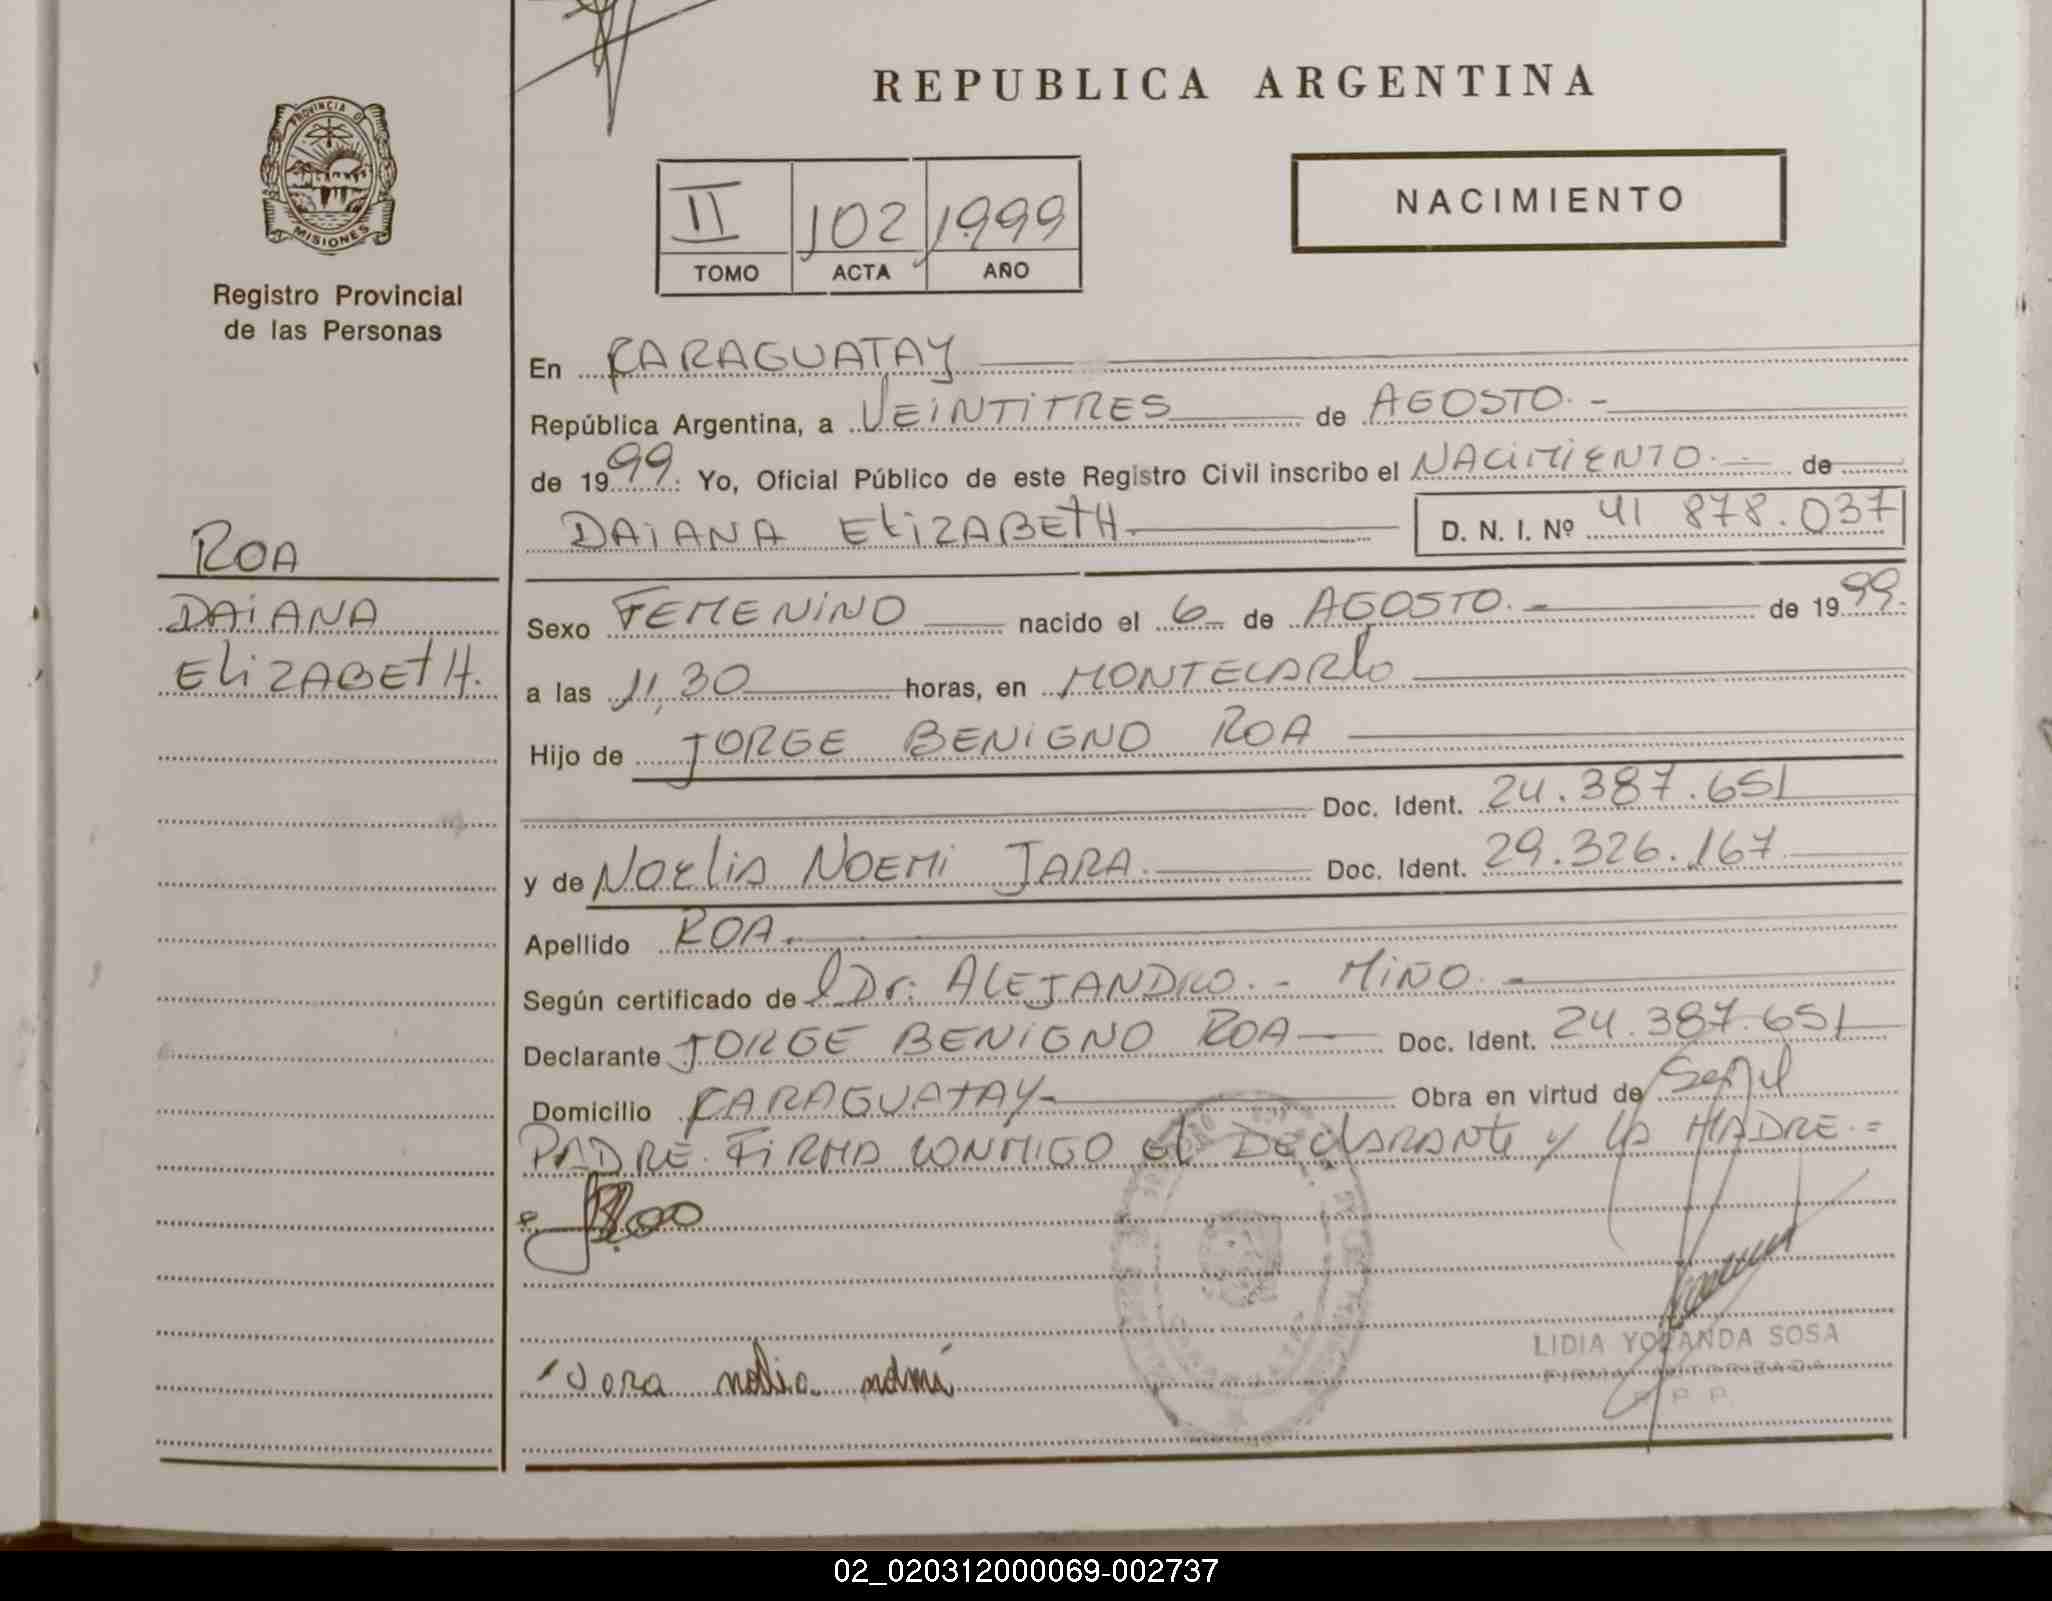 REPUBLICA ARGENTINA
PROVINCIA DE
MISIONES
Registro Provincial
de las Personas
II 102 1999
TOMO ACTA AÑO
NACIMIENTO
En CARAGUATAY
República Argentina, a VEINTITRES de AGOSTO.-
de 1999. Yo, Oficial Público de este Registro Civil inscribo el NACIMIENTO.- de
DAIANA ELIZABETH D. N. I. Nº 41 878.037
ROA
DAIANA
ELIZABETH.
Sexo FEMENINO nacido el 6 de AGOSTO.- de 1999.
a las 11,30 horas, en MONTECARLO
Hijo de JORGE BENIGNO ROA
Doc. Ident. 24.387.651
y de NOELIA NOEMI JARA. Doc. Ident. 29.326.167
Apellido ROA.
Según certificado de Dr. ALEJANDRO.- MIÑO.-
Declarante JORGE BENIGNO ROA Doc. Ident. 24.387.651
Domicilio CARAGUATAY- Obra en virtud de
PADRE. FIRMA CONMIGO EL DECLARANTE Y LA MADRE.=
Jara noelia noemí
LIDIA YOLANDA SOSA
FIRMA AUTORIZADA
R. P. P.
02_020312000069-002737